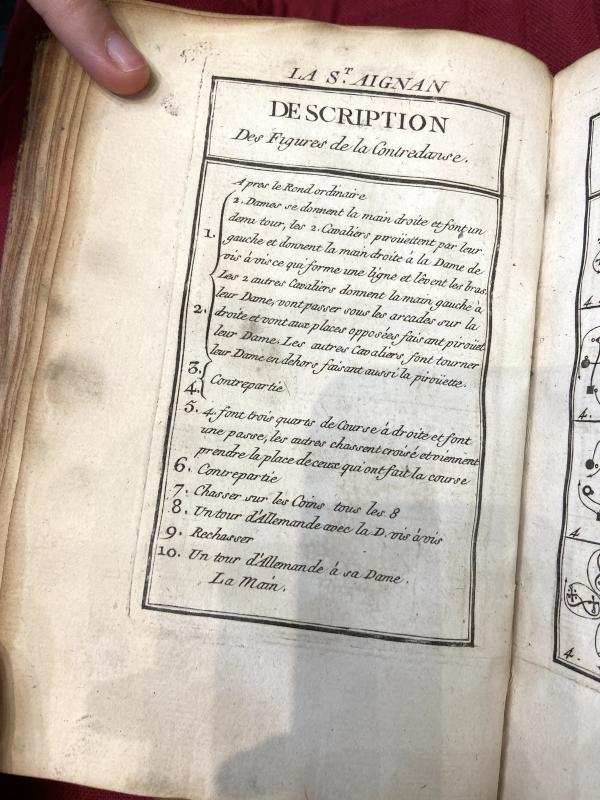 LA S.T AIGNAN
DESCRIPTION
Des Figures de la Contredanse.
Apres le Rond ordinaire
1. 2. Dames se donnent la main droite et font un
demi tour, les 2. Cavaliers pirouëttent par leur
gauche et donnent la main droite à la Dame de
vis à vis ce qui forme une ligne et lêvent les bras.
2. Les 2 autres Cavaliers donnent la main gauche à
leur Dame, vont passer sous les arcades sur la
droite et vont aux places opposées faisant piroüet
leur Dame. Les autres Cavaliers, font tourner
leur Dame en dehors faisant aussi la piroüette.
3.
4. Contrepartie
5. 4. font trois quarts de Course à droite et font
une passe, les autres chassent croisé et viennent
prendre la place de ceux qui ont fait la course
6. Contrepartie
7. Chasser sur les Coins tous les 8
8. Un tour d'Allemande avec la D. vis à vis
9. Rechasser
10. Un tour d'Allemande à sa Dame.
La Main.
4.
4.
4
4.